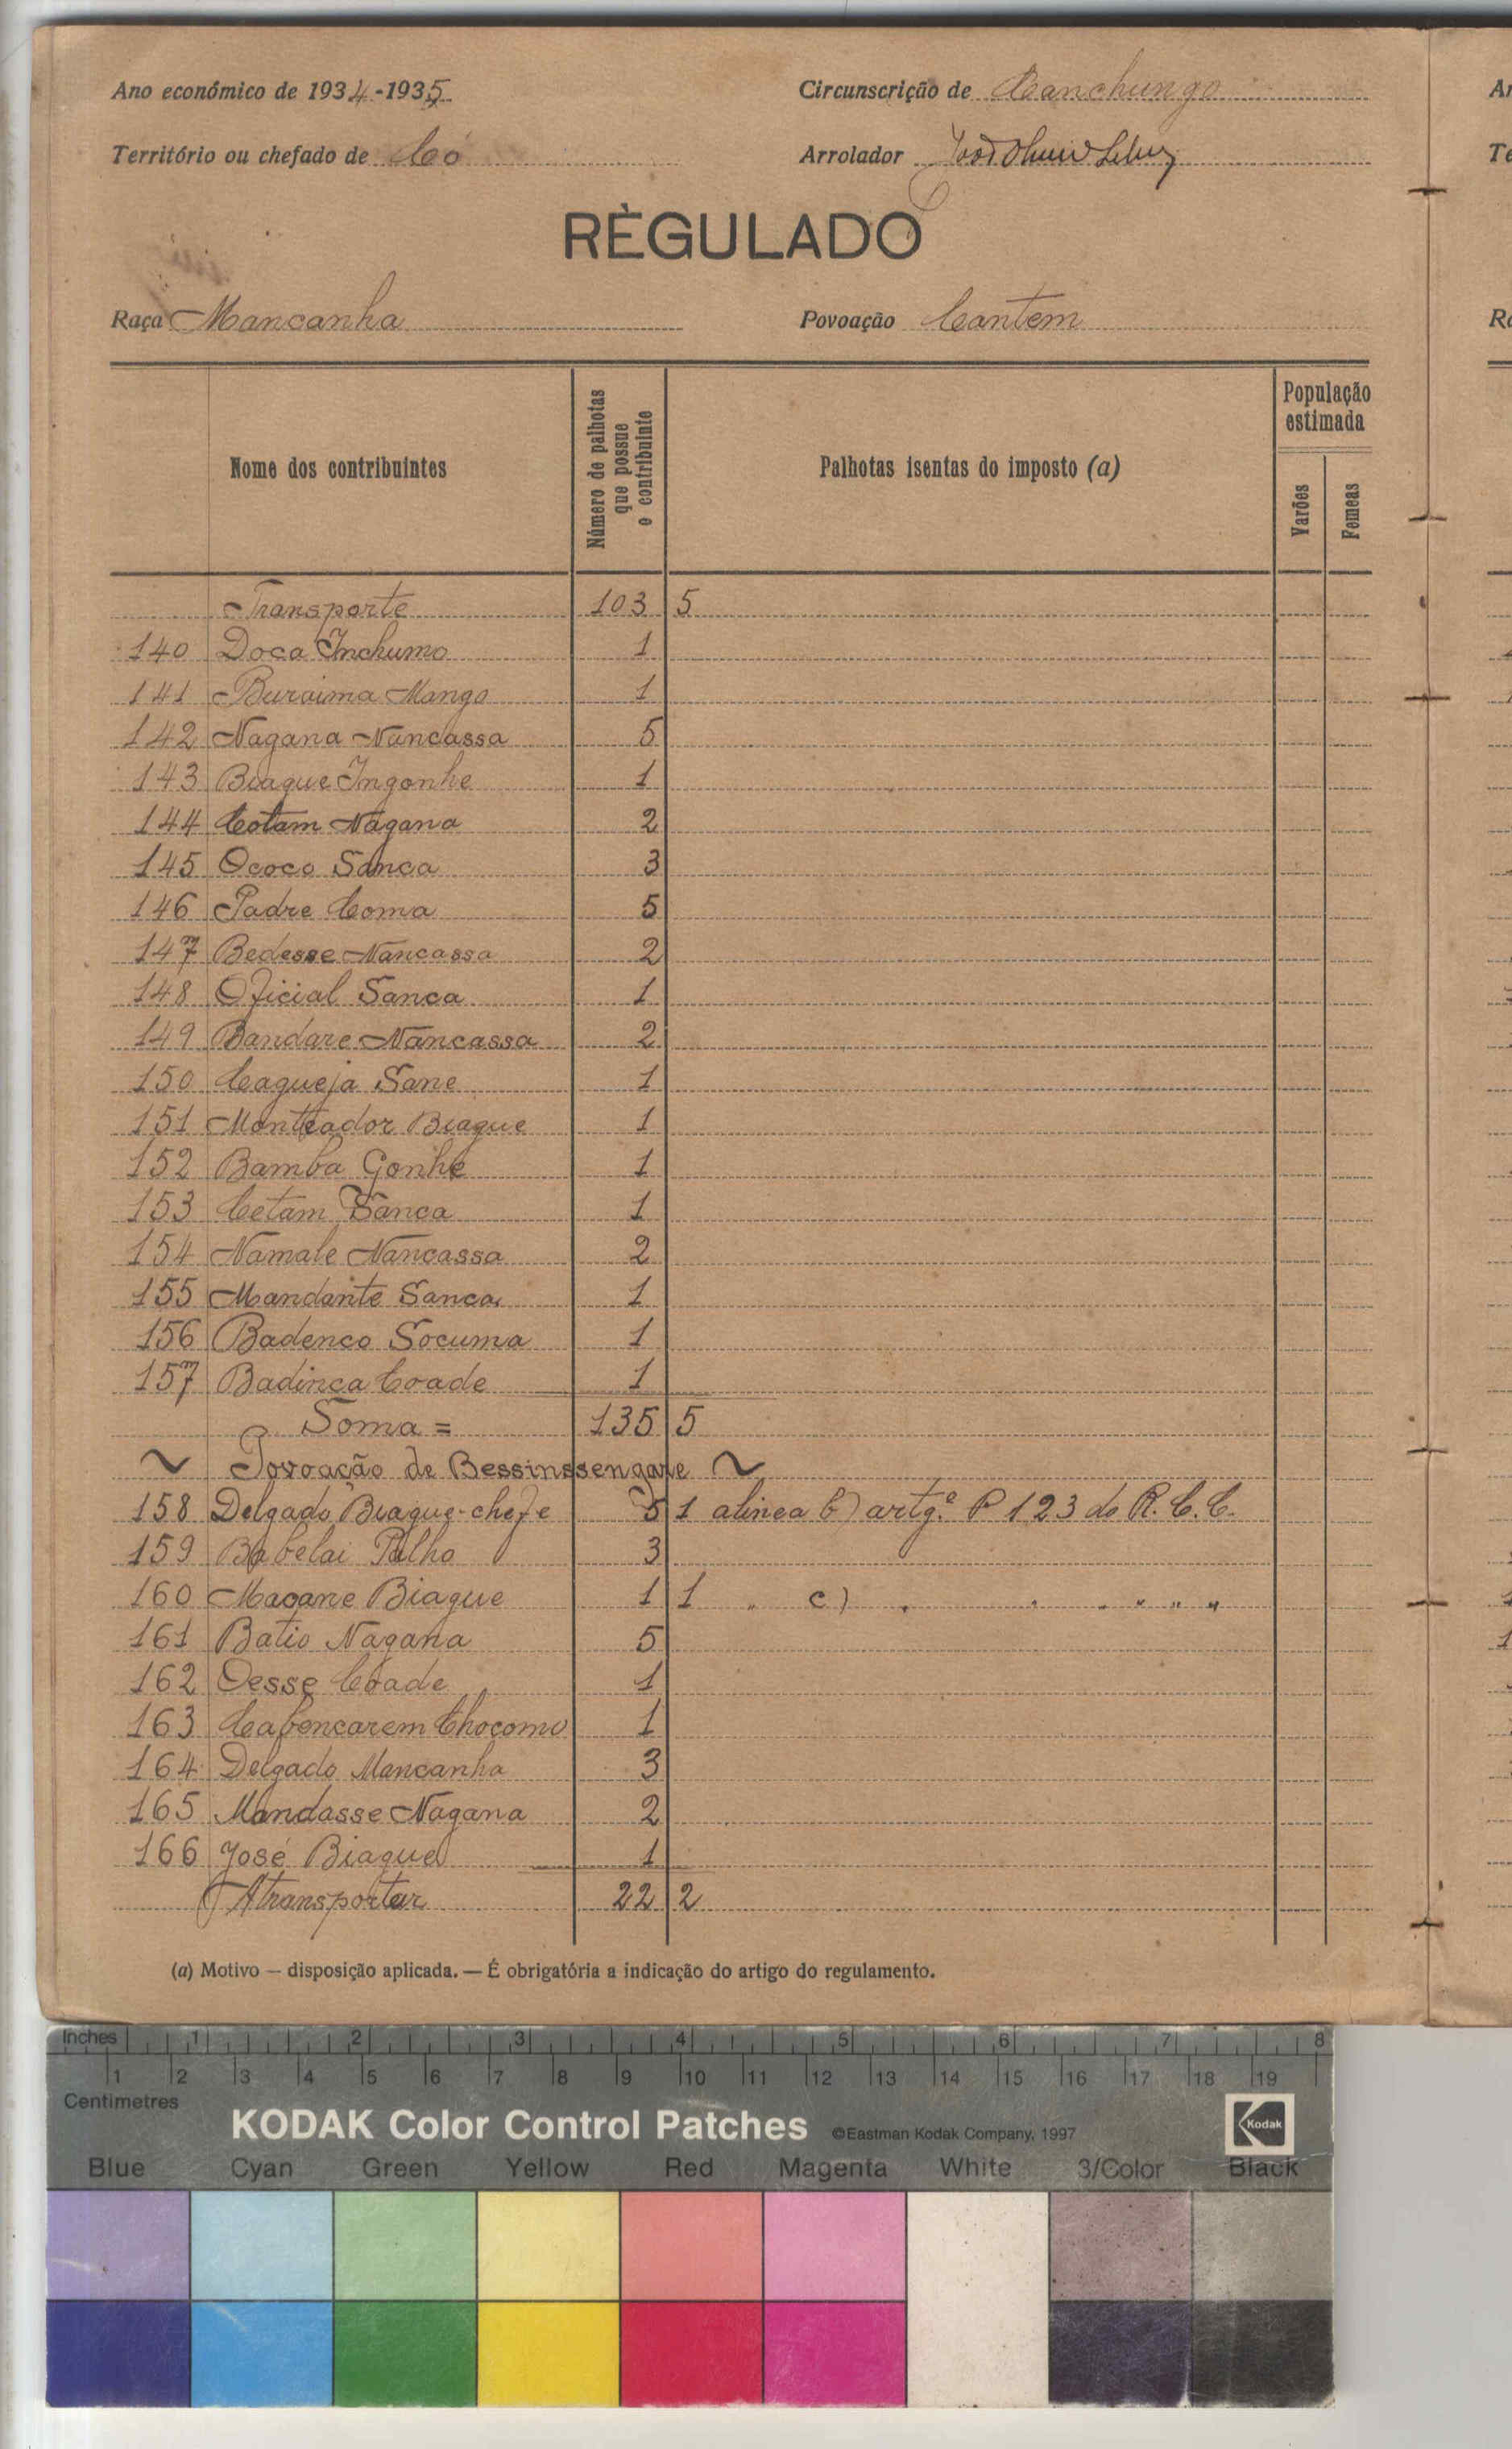 Ano económico de 1934-1935
Circunscrição de Canchungo
Território ou chefado de Có
Arrolador
RÈGULADO
Raça Mancanha
Povoação Cantem
Nome dos contribuintes
Número de palhotas que possue o contribuinte
Palhotas isentas do imposto (a)
População estimada
Varões
Femeas
Transporte 103 5
140 Doca Inchumo 1
141 Buraima Mango 1
142 Nagana Nancassa 5
143 Biague Ingonhe 1
144 Cotam Nagana 2
145 Ococo Sanca 3
146 Padre Coma 5
147 Bedesse Nancassa 2
148 Oficial Sanca 1
149 Bandare Nancassa 2
150 Cagueja Sane 1
151 Monteador Biague 1
152 Bamba Gonhe 1
153 Cetam Sanca 1
154 Namale Nancassa 2
155 Mandante Sanca 1
156 Badenco Socuma 1
157 Badinca Coade 1
Soma = 135 5
~ Povoação de Bessinssengare ~
158 Delgado Biague-chefe 5 1 alinea b) artgº P 123 do R. C. C.
159 Babelai Palho 3
160 Macane Biague 1 1 " c) " " " " " "
161 Batio Nagana 5
162 Oesse Coade 1
163 Cabencarem Chocomo 1
164 Delgado Mancanha 3
165 Mandasse Nagana 2
166 José Biague 1
A transportar 22 2
(a) Motivo — disposição aplicada. — É obrigatória a indicação do artigo do regulamento.
Inches 1 2 3 4 5 6 7 8
1 2 3 4 5 6 7 8 9 10 11 12 13 14 15 16 17 18 19
Centimetres
KODAK Color Control Patches ©Eastman Kodak Company, 1997 Kodak
Blue Cyan Green Yellow Red Magenta White 3/Color Black